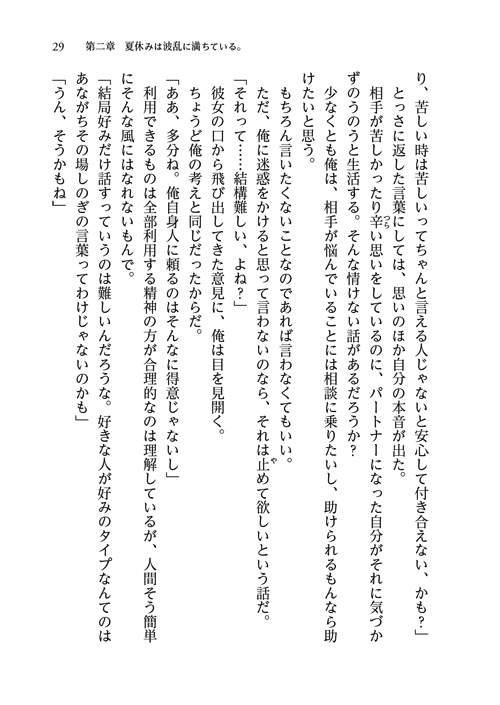 29　第二章　夏休みは波乱に満ちている。
り、苦しい時は苦しいってちゃんと言える人じゃないと安心して付き合えない、かも？」
　とっさに返した言葉にしては、思いのほか自分の本音が出た。
　相手が苦しかったり辛い思いをしているのに、パートナーになった自分がそれに気づか
ずのうのうと生活する。そんな情けない話があるだろうか？
　少なくとも俺は、相手が悩んでいることには相談に乗りたいし、助けられるもんなら助
けたいと思う。
　もちろん言いたくないことなのであれば言わなくてもいい。
　ただ、俺に迷惑をかけると思って言わないのなら、それは止めて欲しいという話だ。
「それって……結構難しい、よね？」
　彼女の口から飛び出してきた意見に、俺は目を見開く。
　ちょうど俺の考えと同じだったからだ。
「ああ、多分ね。俺自身人に頼るのはそんなに得意じゃないし」
　利用できるものは全部利用する精神の方が合理的なのは理解しているが、人間そう簡単
にそんな風にはなれないもんで。
「結局好みだけ話すっていうのは難しいんだろうな。好きな人が好みのタイプなんてのは
あながちその場しのぎの言葉ってわけじゃないのかも」
「うん、そうかもね」